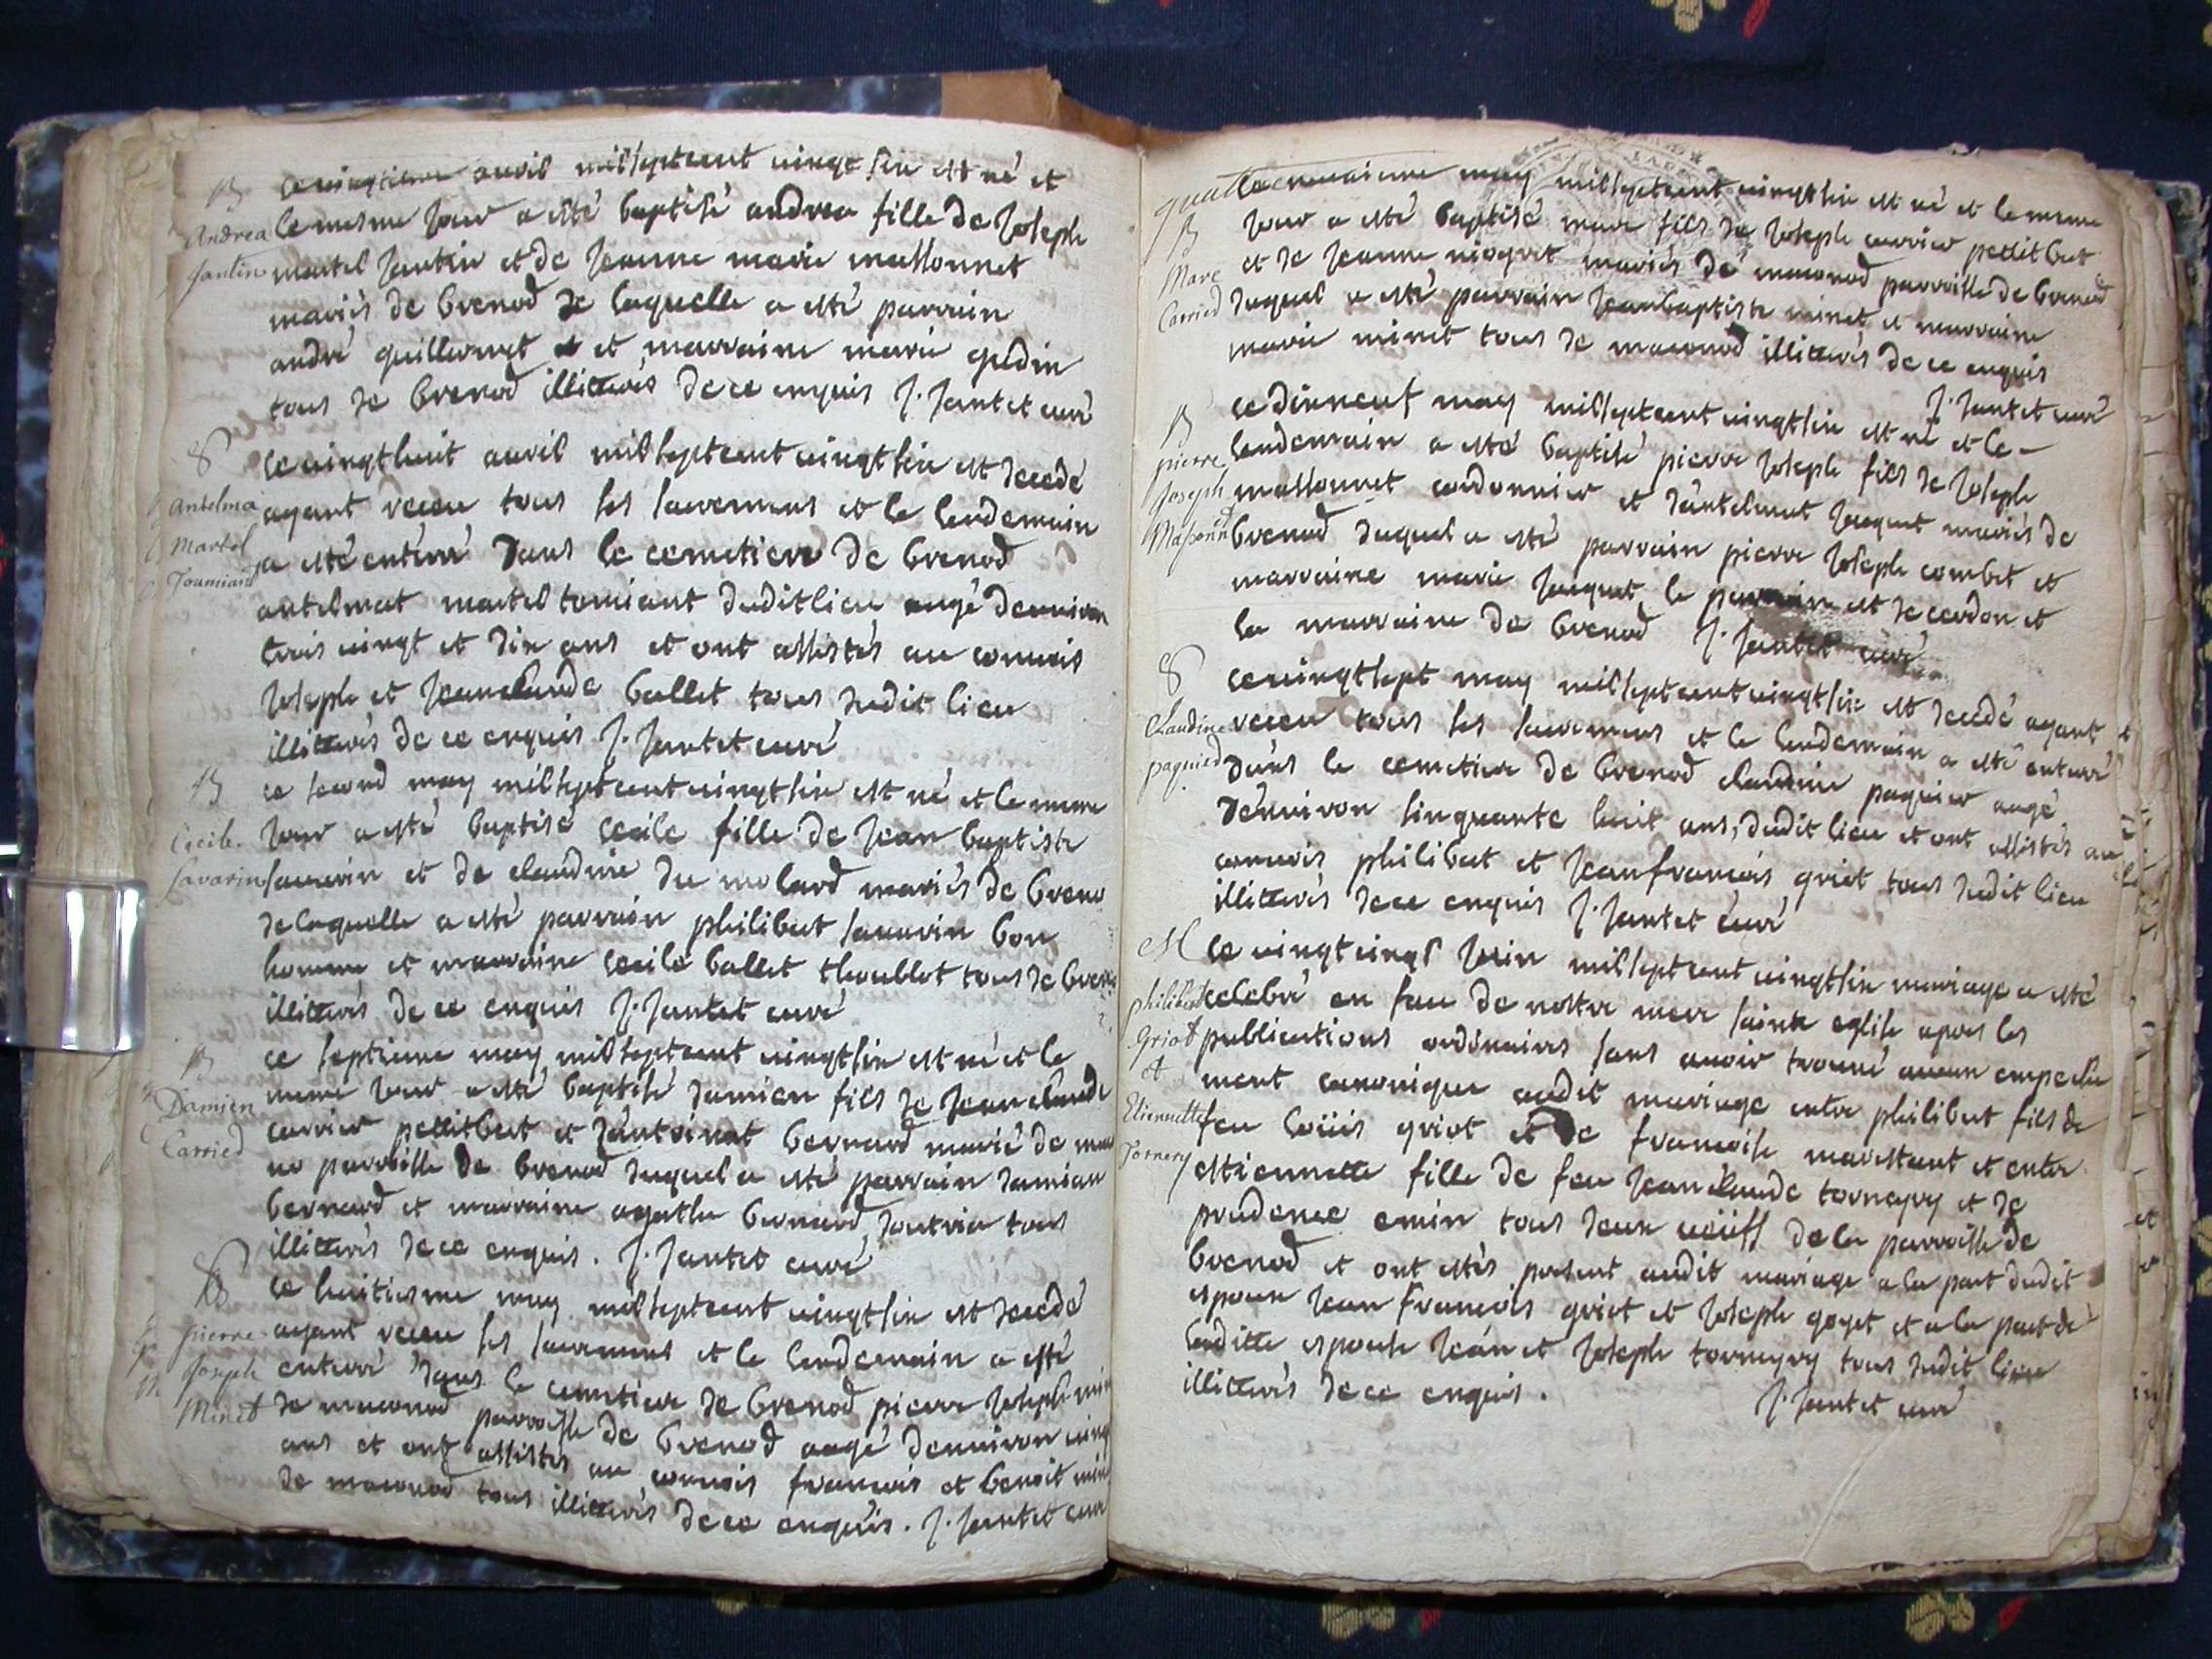 B
ce vingtieme avril mil septcent vingt six est né et
Andrea le mesme jour a esté baptisé andrea fille de Joseph
Jantin martel Jantin et de Jeanne marie massonnet
mariés de brenod de laquelle a esté parrain
andré guillermet et marraine marie gudin
tous de brenod illitterés de ce enquis J. Jantet curé
S
ce vingthuit avril mil septcent vingt six est decedé
Antelma ayant receu tous ses sacremens et le lendemain
Martel a esté enterré dans le cemetiere de brenod
Toumiand
antelmat martel tomiant dudit lieu augé denviron
trois vingt et dix ans et ont assistés au convois
Joseph et Jeanclaude ballet tous dudit lieu
illitterés de ce enquis J. Jantet curé
B
ce second may mil septcent vingt six est né et le mesme
Cecile jour a esté baptisé cecile fille de Jean baptiste
Savarin sauvrin et de claudine du molard mariés de breno
de laquelle a esté parrain philibert sauvrin bon
homme et marraine cecile ballet thoublot tous de bren
illitterés de ce enquis J. Jantet curé
B
ce septieme may mil septcent vingt six est né et le
Damien meme jour a esté baptisé damien fils de Jean claude
Carried carrier pettitbert et d'antoinat bernard marié de ma
no parroisse de brenod duquel a esté parrain damian
bernard et marraine agathe bernard tous
illitterés de ce enquis. J. Jantet curé
S
ce huitiesme may mil septcent vingt six est decedé
pierre ayant receu ses sacremens et le lendemain a esté
Joseph enterré dans le cemetiere de brenod pierre Joseph min
Minet de maconod parroisse de brenod augé denviron vingt
ans et ont assistés au convois francois et benoit min
de maconod tous illitterés de ce enquis. J. Jantet curé
quatte
ce neuvieme may mil septcent vingt six est né et le meme
B jour a esté baptisé marc fils de Joseph carrier pettitbert
Marc et de Jeanne nioguet mariés de maconod parroisse de brenod
Carried duquel a esté parrain Jeanbaptiste minet et marraine
marie minet tous de maconod illitterés de ce enquis
J. Jantet curé
B ce dixneuf may mil septcent vingt six est né et le
pierre lendemain a esté baptisé pierre Joseph fils de Joseph
Joseph massonnet cordonnier et d'antelmat Jacquet mariés de
Massonnet brenod duquel a esté parrain pierre Joseph combet et
marraine marie Jacquet le parrain est de cerdon et
la marraine de brenod J. Jantet curé
S ce vingtsept may mil septcent vingt six est decedé ayant
Claudine receu tous ses sacremens et le lendemain a esté enterré
paquied dans le cemetiere de brenod claudine paquier augé
d'environ sinquante huit ans, dudit lieu et ont assistés au
convois philibert et Jeanfrancois griot tous dudit lieu
illitterés de ce enquis J. Jantet curé
M ce vingt cinq Juin mil septcent vingt six mariage a esté
philibert celebré en face de nostre mere sainte eglise apres les
Griot publications ordinaires sans avoir trouvé aucun empeche
et ment canonique audit mariage entre philibert fils de
Etiennette feu loüis griot et de francoise marestant et entre
Tornery estiennette fille de feu Jeanclaude torneyry et de
prudence emin tous deux de la parroisse de
brenod et ont estés present audit mariage a la part dudit
espoux Jean francois griot et Joseph goyet et a la part de
laditte espouse Jean et Joseph torneyry tous dudit lieu
illitterés de ce enquis.
J. Jantet curé